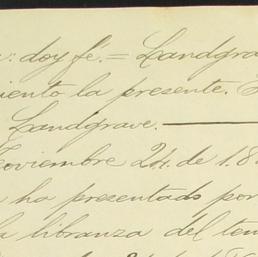 : doy fé.= Landgra
iento la presente.
Landgrave.
Noviembre 24. de 18
ha presentado por
la libranza del ten